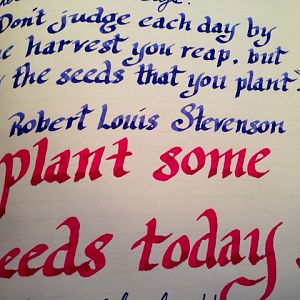 Don't judge each day by
harvest you reap, but
the seeds that you plant".
Robert Louis Stevenson
plant some
eeds today